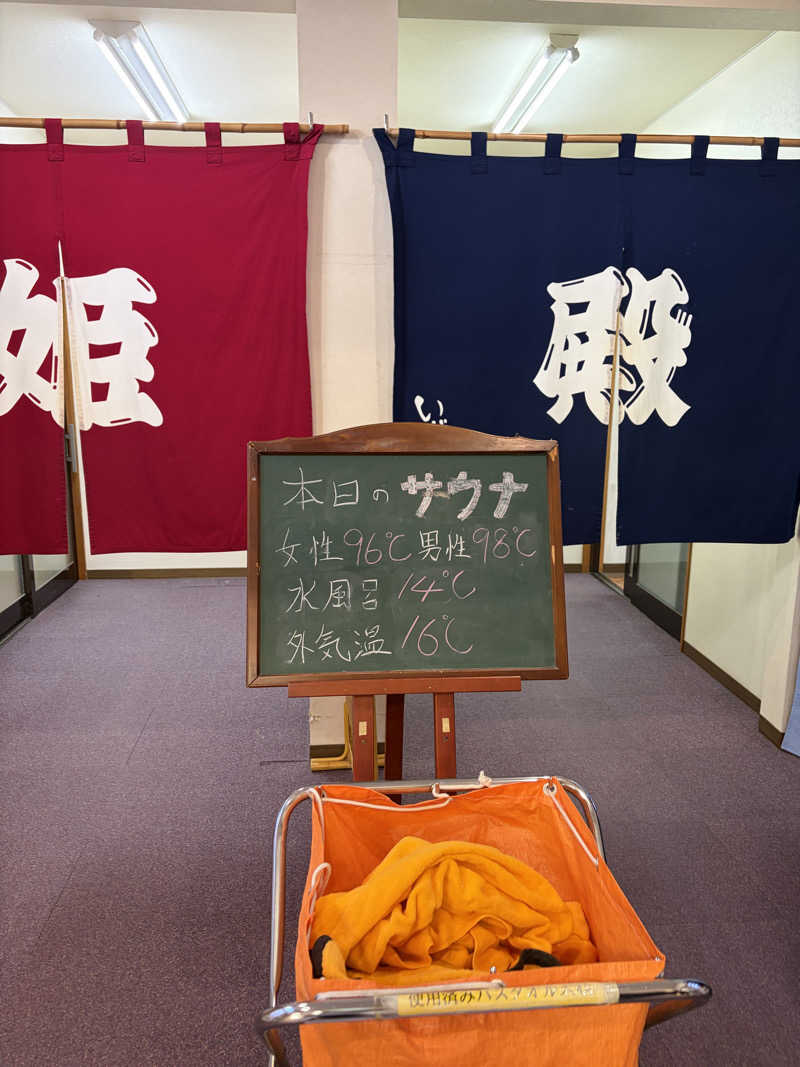 姫
殿
本日のサウナ
女性96℃ 男性98℃
水風呂 14℃
外気温 16℃
使用済みバスタオル